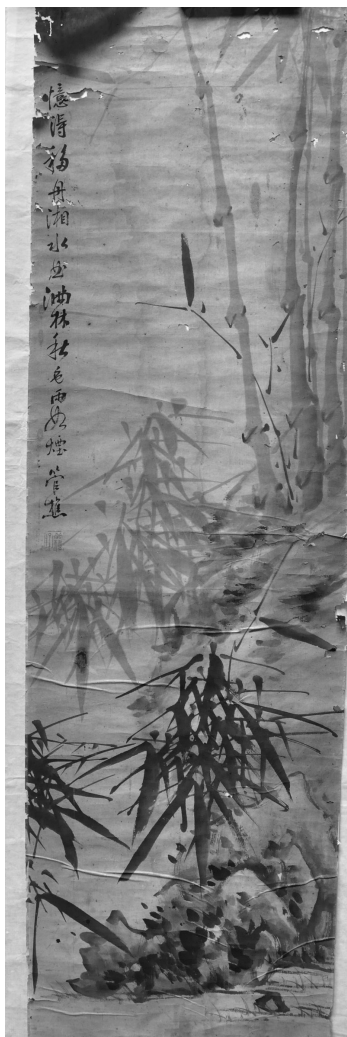 憶得移舟湘水曲滿林秋色雨如煙 管樵